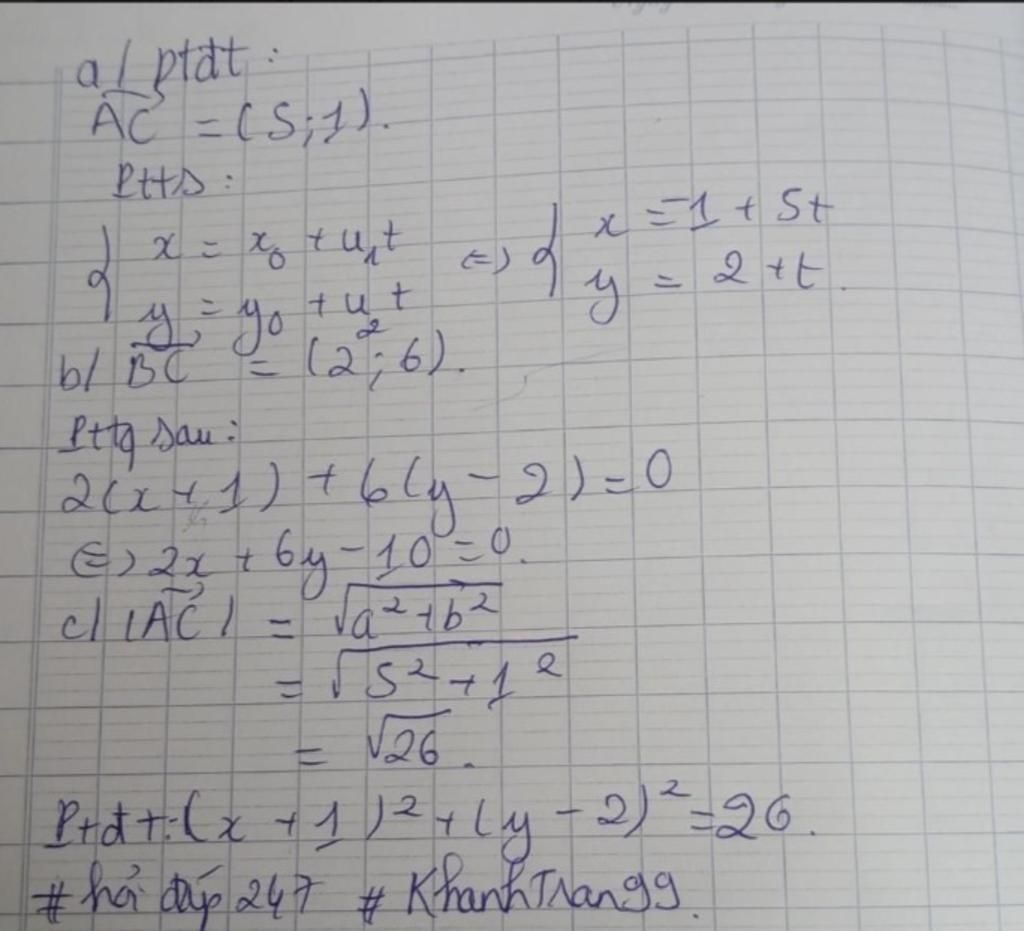 a/ ptđt :
AC = (5;1).
PttS :
{ x = x₀ + u₁t ⇔ { x = -1 + 5t
y = y₀ + u₂t y = 2 + t.
b/ BC = (2;6).
Pttq sau:
2(x+1) + 6(y-2) = 0
⇔ 2x + 6y - 10 = 0.
c/ |AC| = √a²+b²
= √5²+1²
= √26.
Ptđt: (x+1)² + (y-2)² = 26.
# hỏi đáp 247 # KhanhTran99.